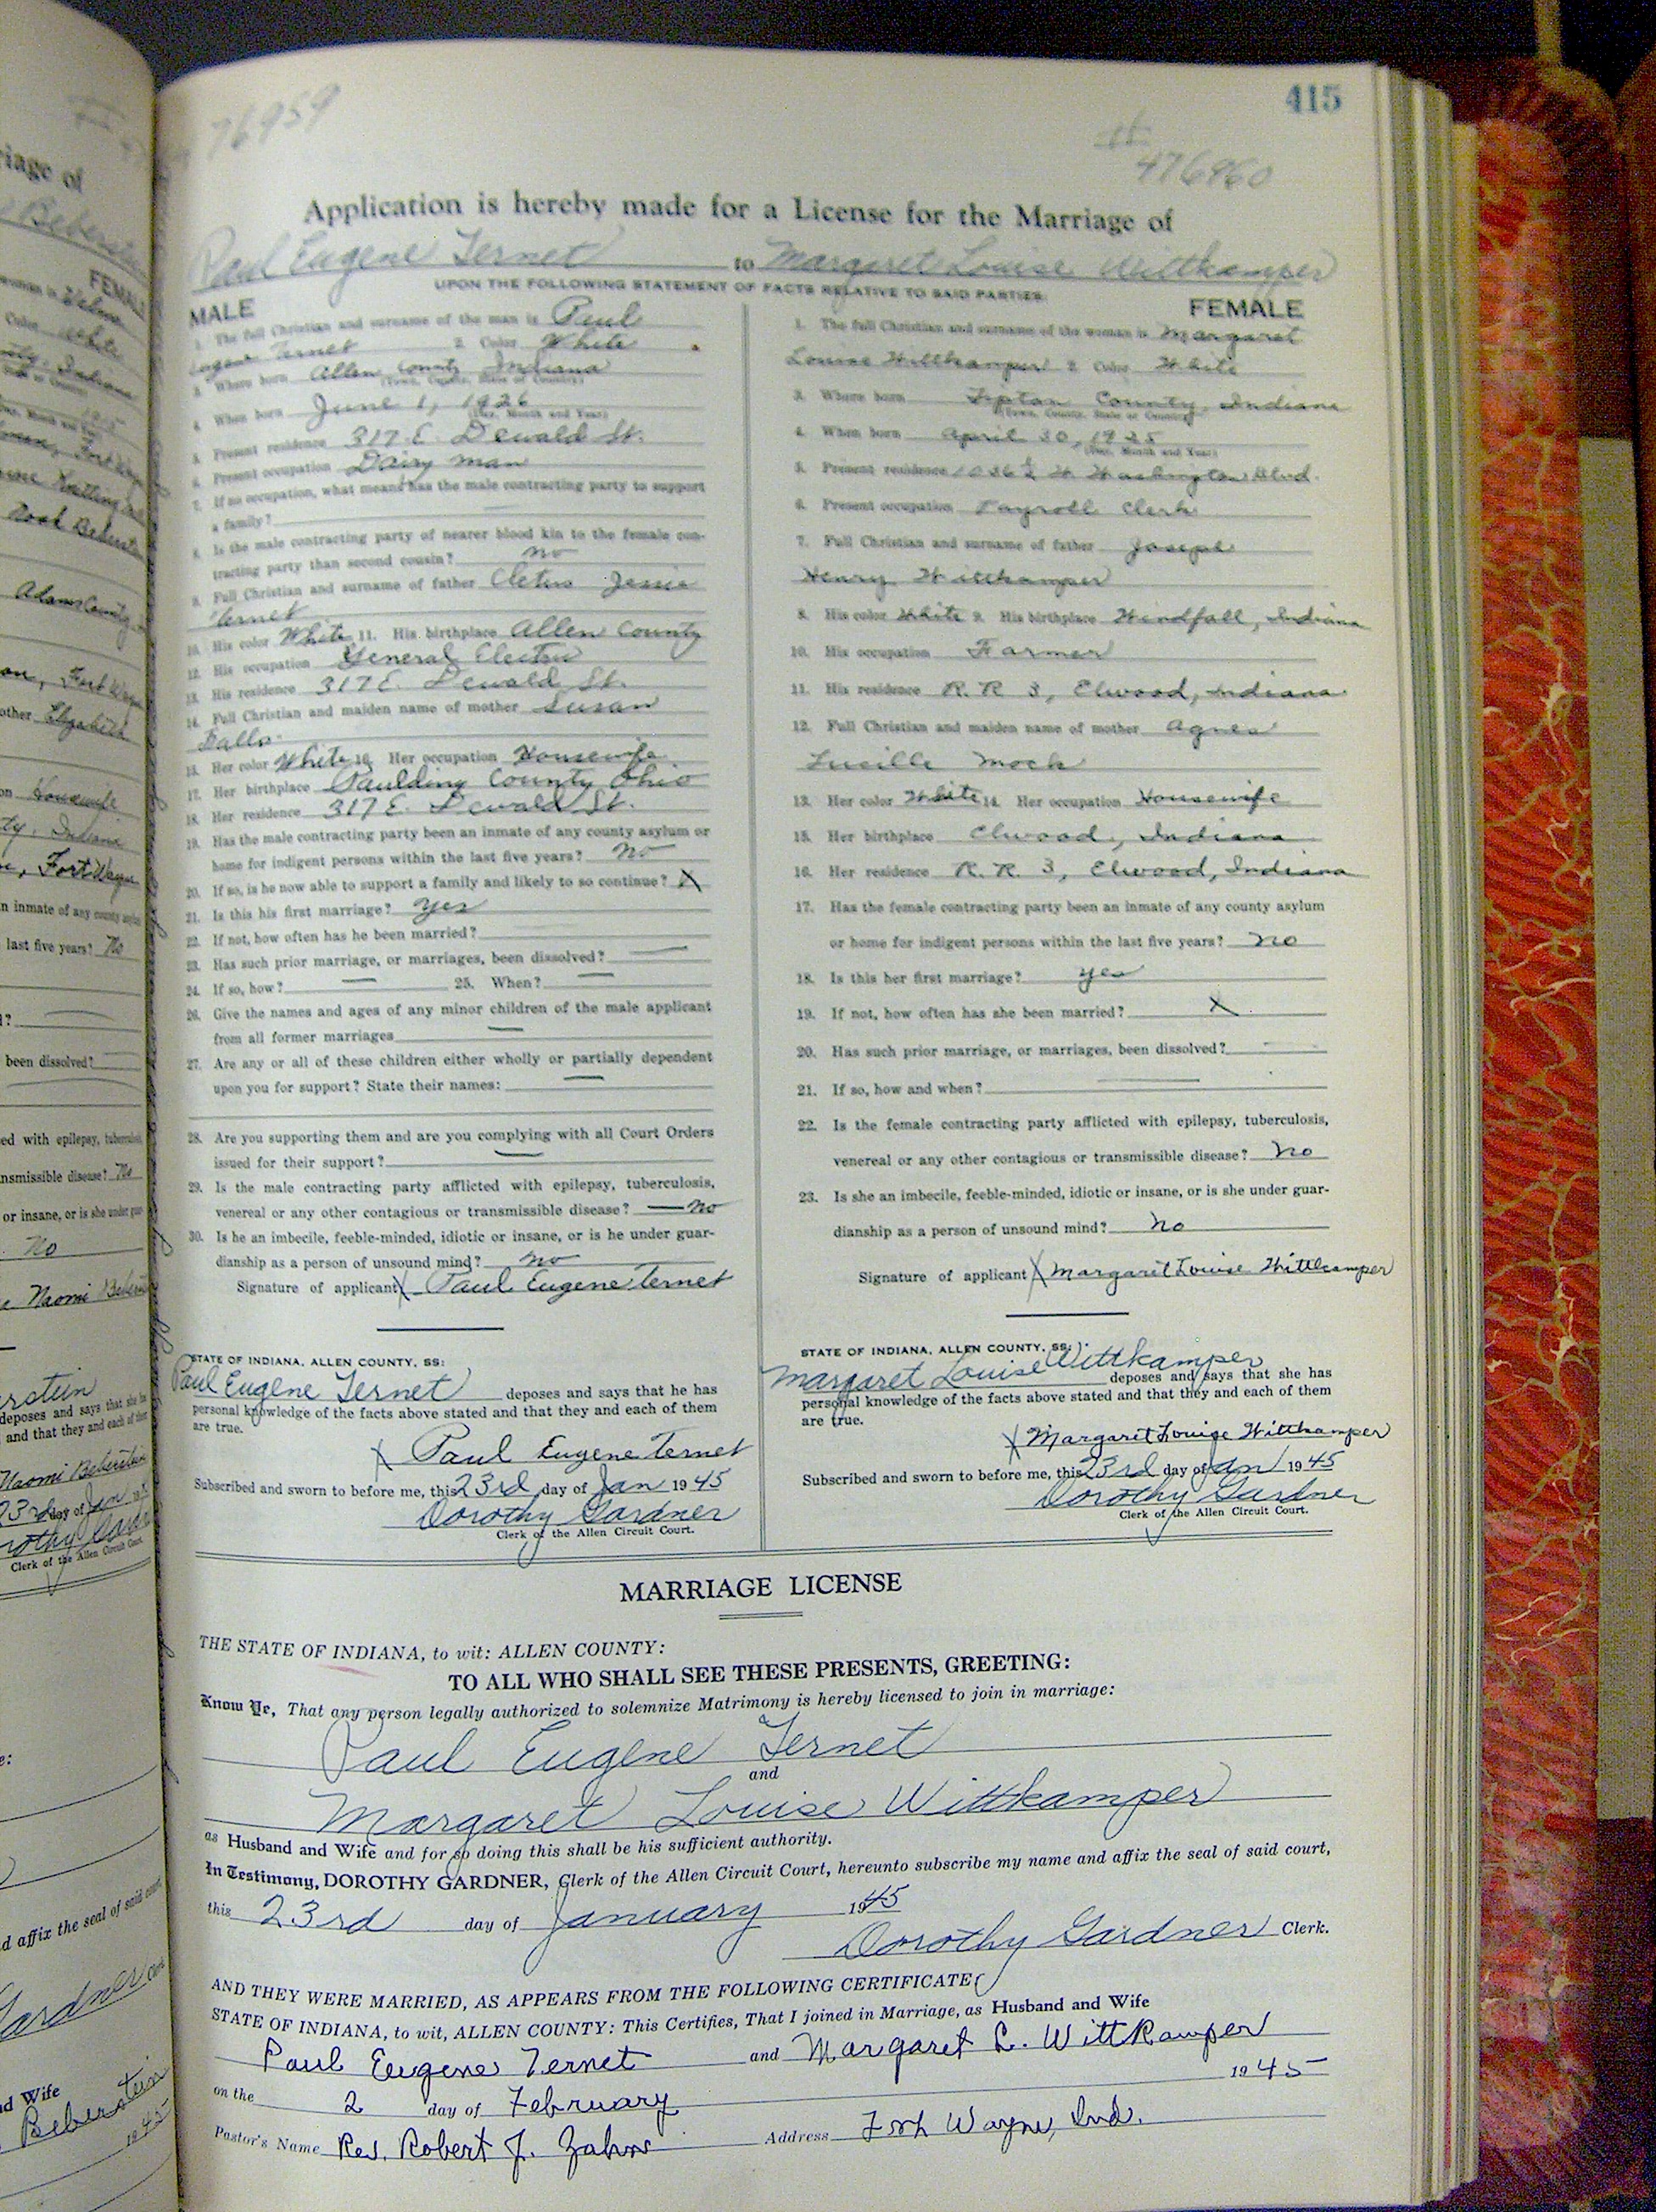 415
76959
476960
Application is hereby made for a License for the Marriage of
Paul Eugene Ternet to Margaret Louise Wittkamper
UPON THE FOLLOWING STATEMENT OF FACTS RELATIVE TO SAID PARTIES:
MALE
1. The full Christian and surname of the man is Paul
Eugene Ternet 2. Color White
3. Where born Allen County Indiana
(Town, County, State or Country)
4. When born June 1, 1926
(Day, Month and Year)
5. Present residence 317 E. Dewald St.
6. Present occupation Dairy man
7. If no occupation, what means has the male contracting party to support
a family?
8. Is the male contracting party of nearer blood kin to the female con-
tracting party than second cousin? no
9. Full Christian and surname of father Cletus Jessie
Ternet
10. His color White 11. His birthplace Allen County
12. His occupation General Electric
13. His residence 317 E. Dewald St.
14. Full Christian and maiden name of mother Susan
15. Her color White 16. Her occupation Housewife
17. Her birthplace Paulding County Ohio
18. Her residence 317 E. Dewald St.
19. Has the male contracting party been an inmate of any county asylum or
home for indigent persons within the last five years? no
20. If so, is he now able to support a family and likely to so continue? X
21. Is this his first marriage? yes
22. If not, how often has he been married?
23. Has such prior marriage, or marriages, been dissolved? —
24. If so, how? — 25. When? —
26. Give the names and ages of any minor children of the male applicant
from all former marriages —
27. Are any or all of these children either wholly or partially dependent
upon you for support? State their names: —
28. Are you supporting them and are you complying with all Court Orders
issued for their support? —
29. Is the male contracting party afflicted with epilepsy, tuberculosis,
venereal or any other contagious or transmissible disease? — no
30. Is he an imbecile, feeble-minded, idiotic or insane, or is he under guar-
dianship as a person of unsound mind? no
Signature of applicant X Paul Eugene Ternet
STATE OF INDIANA, ALLEN COUNTY, SS:
Paul Eugene Ternet deposes and says that he has
personal knowledge of the facts above stated and that they and each of them
are true.
X Paul Eugene Ternet
Subscribed and sworn to before me, this 23rd day of Jan 1945
Dorothy Gardner
Clerk of the Allen Circuit Court.
FEMALE
1. The full Christian and surname of the woman is Margaret
Louise Wittkamper 2. Color White
3. Where born Tipton County, Indiana
(Town, County, State or Country)
4. When born April 30, 1925
(Day, Month and Year)
5. Present residence 1036½ W. Washington Blvd.
6. Present occupation Payroll Clerk
7. Full Christian and surname of father Joseph
Henry Wittkamper
8. His color White 9. His birthplace Windfall, Indiana
10. His occupation Farmer
11. His residence R. R. 3, Elwood, Indiana
12. Full Christian and maiden name of mother Agnes
Lucille Mock
13. Her color White 14. Her occupation Housewife
15. Her birthplace Elwood, Indiana
16. Her residence R. R. 3, Elwood, Indiana
17. Has the female contracting party been an inmate of any county asylum
or home for indigent persons within the last five years? no
18. Is this her first marriage? yes
19. If not, how often has she been married? X
20. Has such prior marriage, or marriages, been dissolved? —
21. If so, how and when? —
22. Is the female contracting party afflicted with epilepsy, tuberculosis,
venereal or any other contagious or transmissible disease? no
23. Is she an imbecile, feeble-minded, idiotic or insane, or is she under guar-
dianship as a person of unsound mind? no
Signature of applicant X Margaret Louise Wittkamper
STATE OF INDIANA, ALLEN COUNTY, SS:
Margaret Louise Wittkamper deposes and says that she has
personal knowledge of the facts above stated and that they and each of them
are true.
X Margaret Louise Wittkamper
Subscribed and sworn to before me, this 23rd day of Jan 1945
Dorothy Gardner
Clerk of the Allen Circuit Court.
MARRIAGE LICENSE
THE STATE OF INDIANA, to wit: ALLEN COUNTY:
TO ALL WHO SHALL SEE THESE PRESENTS, GREETING:
Know Ye, That any person legally authorized to solemnize Matrimony is hereby licensed to join in marriage:
Paul Eugene Ternet
and
Margaret Louise Wittkamper
as Husband and Wife and for so doing this shall be his sufficient authority.
In Testimony, DOROTHY GARDNER, Clerk of the Allen Circuit Court, hereunto subscribe my name and affix the seal of said court,
this 23rd day of January 1945
Dorothy Gardner Clerk.
AND THEY WERE MARRIED, AS APPEARS FROM THE FOLLOWING CERTIFICATE
STATE OF INDIANA, to wit, ALLEN COUNTY: This Certifies, That I joined in Marriage, as Husband and Wife
Paul Eugene Ternet and Margaret L. Wittkamper
on the 2 day of February 1945
Pastor's Name Rev. Robert J. Zahn Address Fort Wayne, Ind.